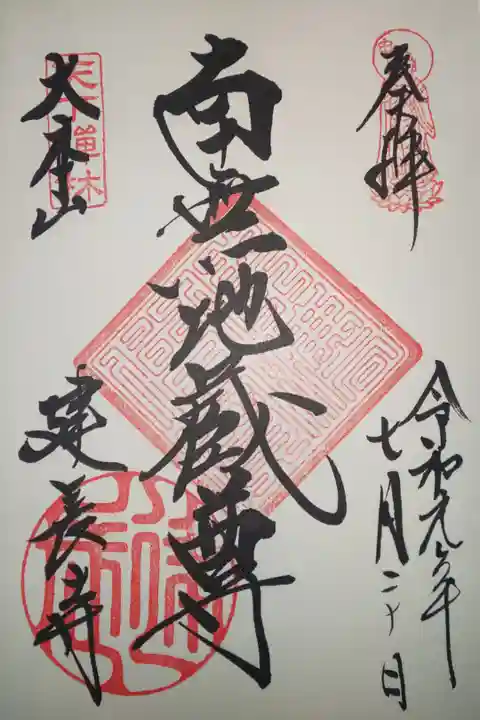 奉拝
令和元年
七月二十日
南無地蔵尊
大本山
建長寺
天下禅林